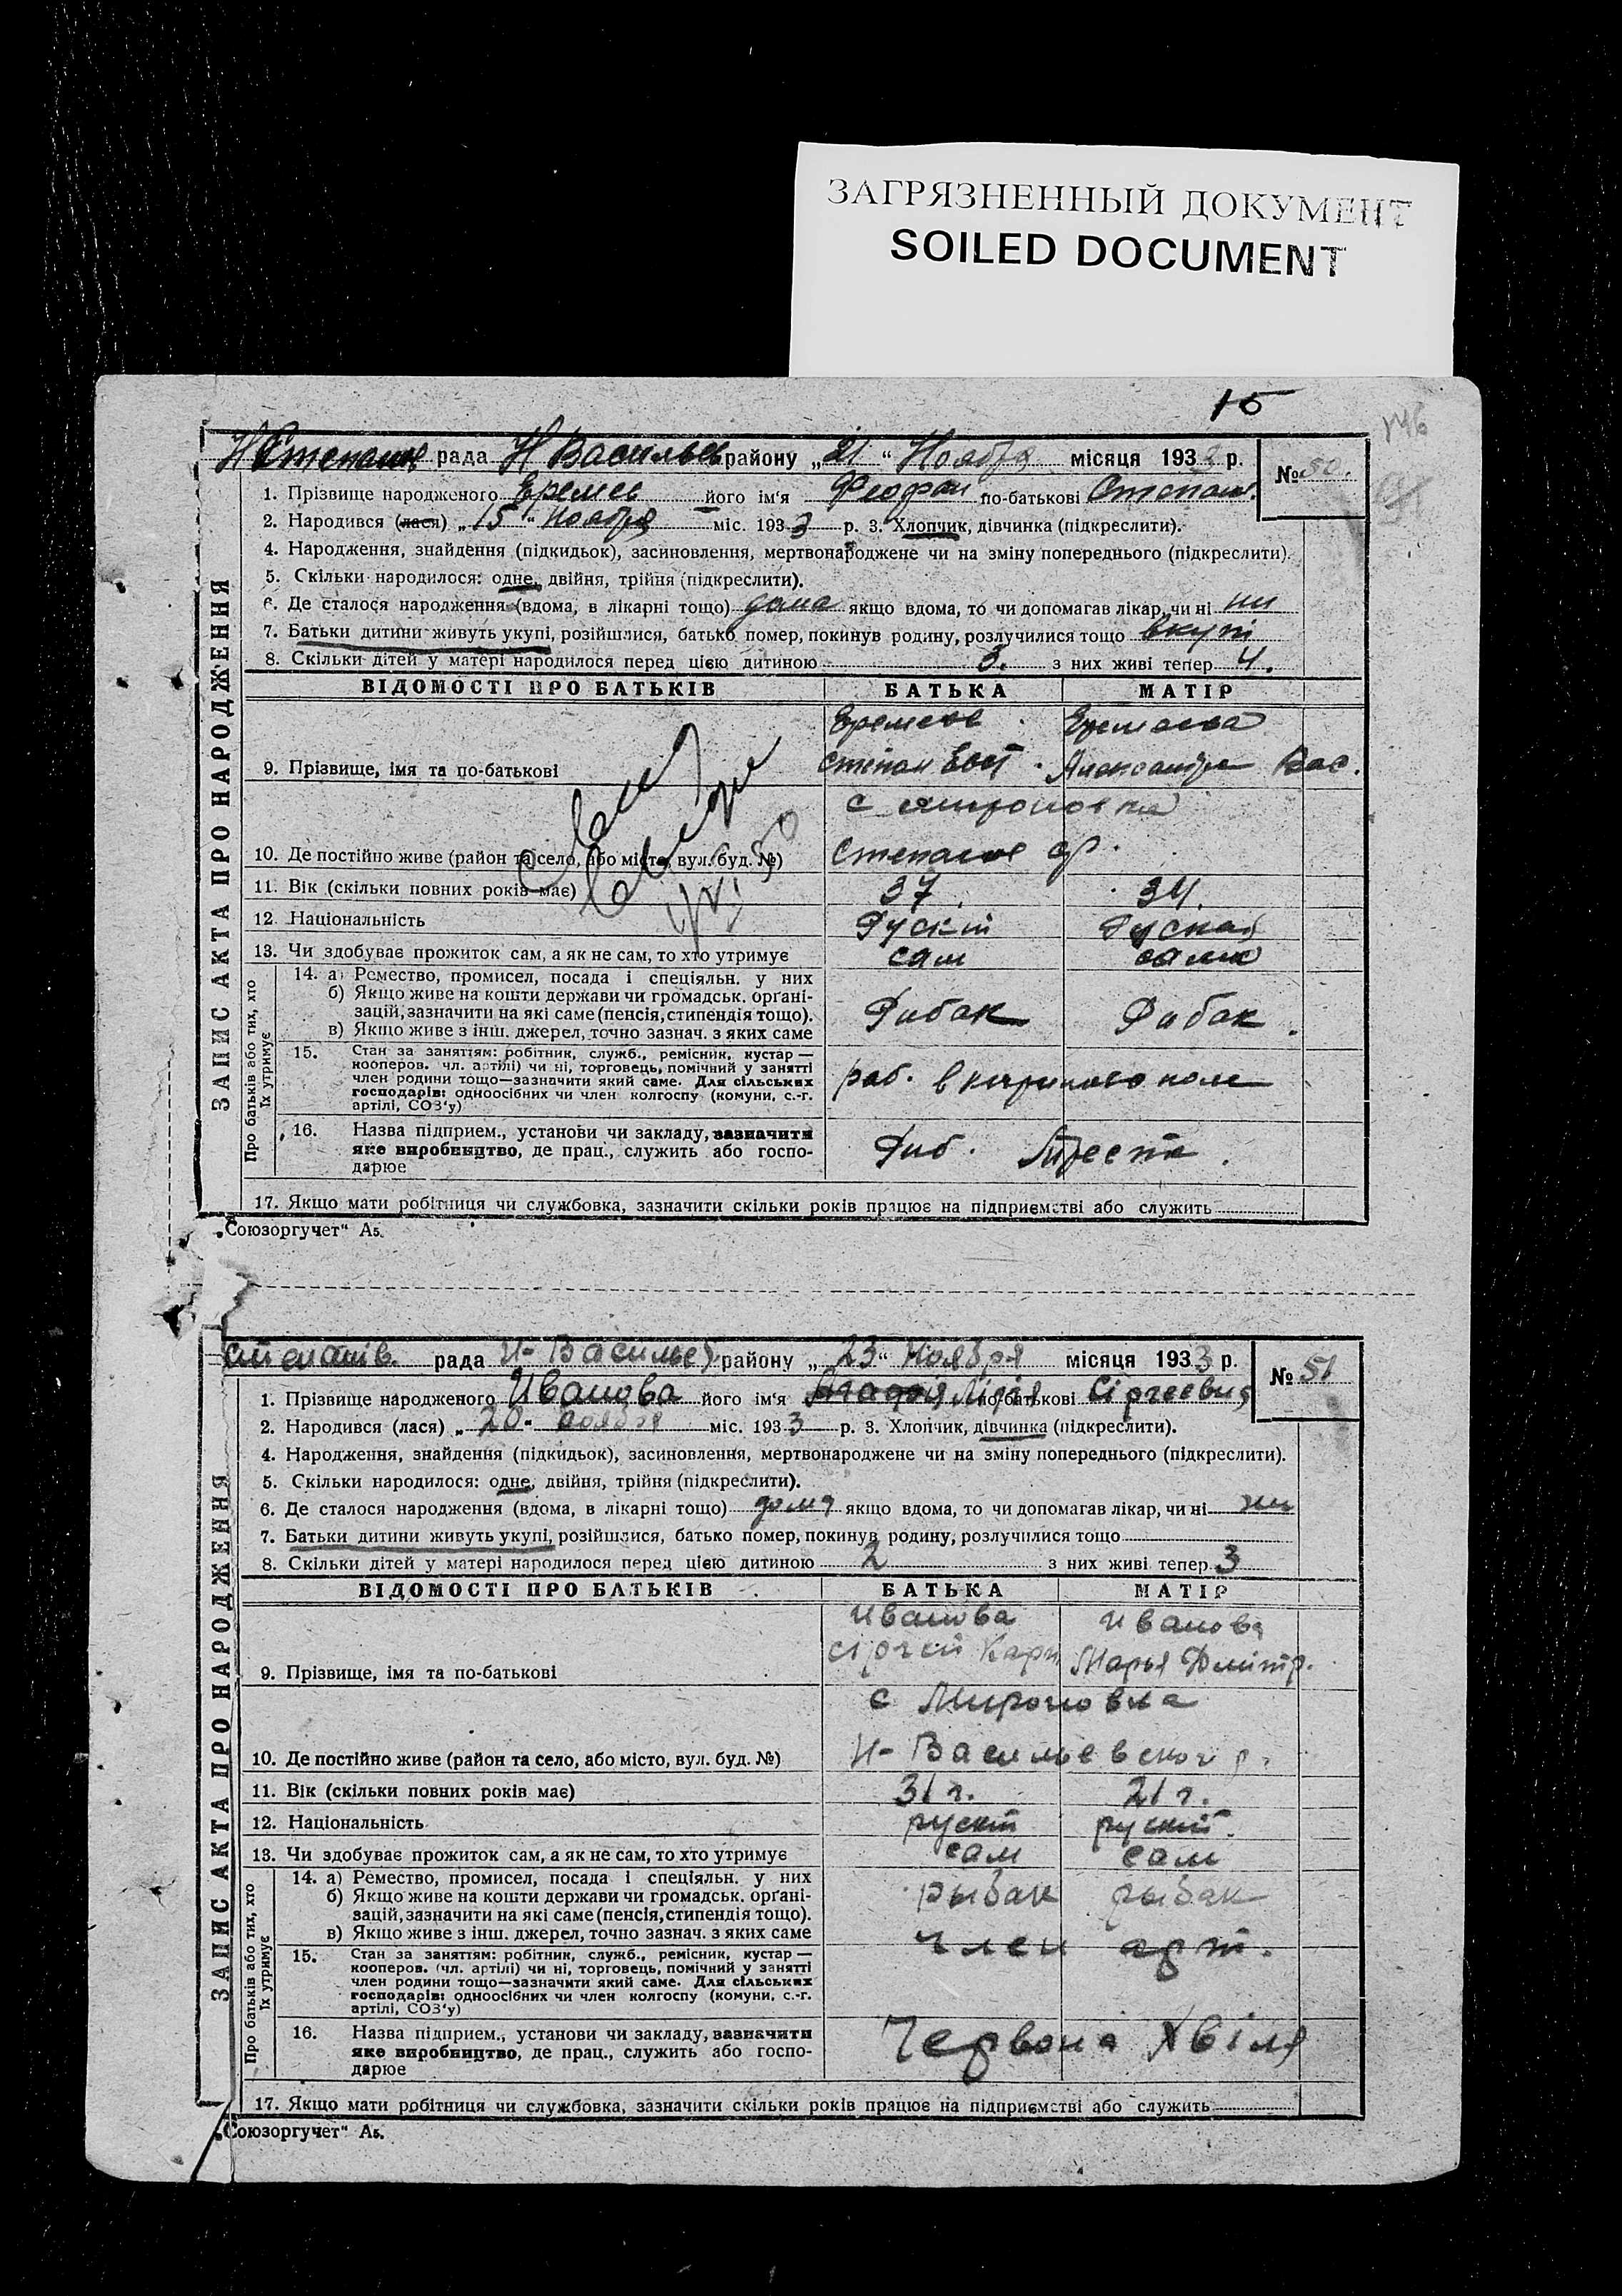 ЗАГРЯЗНЕННЫЙ ДОКУМЕНТ
SOILED DOCUMENT
15
146
рада Н Васильев району „21“ Ноября місяця 1933 р. № 50.
1. Прізвище народженого Еремев його ім'я Феофан по-батькові Степан.
2. Народився (лася) „15“ Ноября міс. 1933 р. 3. Хлопчик, дівчинка (підкреслити).
4. Народження, знайдення (підкидьок), засиновлення, мертвонароджене чи на зміну попереднього (підкреслити).
5. Скільки народилося: одне, двійня, трійня (підкреслити).
6. Де сталося народження (вдома, в лікарні тощо) дома якщо вдома, то чи допомагав лікар, чи ні ни
7. Батьки дитини живуть укупі, розійшлися, батько помер, покинув родину, розлучилися тощо вкупі
8. Скільки дітей у матері народилося перед цією дитиною 5. з них живі тепер 4.
ЗАПИС АКТА ПРО НАРОДЖЕННЯ
ВІДОМОСТІ ПРО БАТЬКІВ БАТЬКА МАТІР
Еремеев Еремеева
9. Прізвище, імя та по-батькові Степан Евст. Александра Вас.
с Мироновка
10. Де постійно живе (район та село, або місто, вул. буд. №)
11. Вік (скільки повних років має) 37. 34.
12. Національність Руский Руская
13. Чи здобуває прожиток сам, а як не сам, то хто утримує сам сама
Про батьків або тих, хто їх утримує
14. а) Ремество, промисел, посада і спеціяльн. у них
б) Якщо живе на кошти держави чи громадськ. органі-
зацій, зазначити на які саме (пенсія, стипендія тощо). Рибак Рибак.
в) Якщо живе з інш. джерел, точно зазнач. з яких саме
15. Стан за заняттям: робітник, служб., ремісник, кустар —
кооперов. чл. артілі) чи ні, торговець, помічний у занятті
член родини тощо—зазначити який саме. Для сільських раб. в
господарів: одноосібних чи член колгоспу (комуни, с.-г.
артілі, СОЗ'у)
16. Назва підприєм., установи чи закладу, зазначити
яке виробництво, де прац., служить або госпо- Риб. Треста.
дарює
17. Якщо мати робітниця чи службовка, зазначити скільки років працює на підприємстві або служить
„Союзоргучет" А5.
Степанів. рада Н-Васильев району „23“ Ноября місяця 1933 р. № 51
1. Прізвище народженого Иванова його ім'я Агафія Лідія по-батькові Сіргеевня
2. Народився (лася) „20“ ноября міс. 1933 р. 3. Хлопчик, дівчинка (підкреслити).
4. Народження, знайдення (підкидьок), засиновлення, мертвонароджене чи на зміну попереднього (підкреслити).
5. Скільки народилося: одне, двійня, трійня (підкреслити).
6. Де сталося народження (вдома, в лікарні тощо) дома якщо вдома, то чи допомагав лікар, чи ні ни
7. Батьки дитини живуть укупі, розійшлися, батько помер, покинув родину, розлучилися тощо
8. Скільки дітей у матері народилося перед цією дитиною 2 з них живі тепер 3
ЗАПИС АКТА ПРО НАРОДЖЕННЯ
ВІДОМОСТІ ПРО БАТЬКІВ БАТЬКА МАТІР
Иванова Иванова
9. Прізвище, імя та по-батькові Сіргей Карп Марья Дмітр.
с Мироновка
10. Де постійно живе (район та село, або місто, вул. буд. №) Н-Васильевског р.
11. Вік (скільки повних років має) 31 г. 21 г.
12. Національність рускій рускій.
13. Чи здобуває прожиток сам, а як не сам, то хто утримує сам сам
Про батьків або тих, хто їх утримує
14. а) Ремество, промисел, посада і спеціяльн. у них
б) Якщо живе на кошти держави чи громадськ. органі- рыбак рыбак
зацій, зазначити на які саме (пенсія, стипендія тощо).
в) Якщо живе з інш. джерел, точно зазнач. з яких саме член арт.
15. Стан за заняттям: робітник, служб., ремісник, кустар —
кооперов. (чл. артілі) чи ні, торговець, помічний у занятті
член родини тощо—зазначити який саме. Для сільських
господарів: одноосібних чи член колгоспу (комуни, с.-г.
артілі, СОЗ'у)
16. Назва підприєм., установи чи закладу, зазначити
яке виробництво, де прац., служить або госпо- Червона Хвіля
дарює
17. Якщо мати робітниця чи службовка, зазначити скільки років працює на підприємстві або служить
„Союзоргучет" А5.